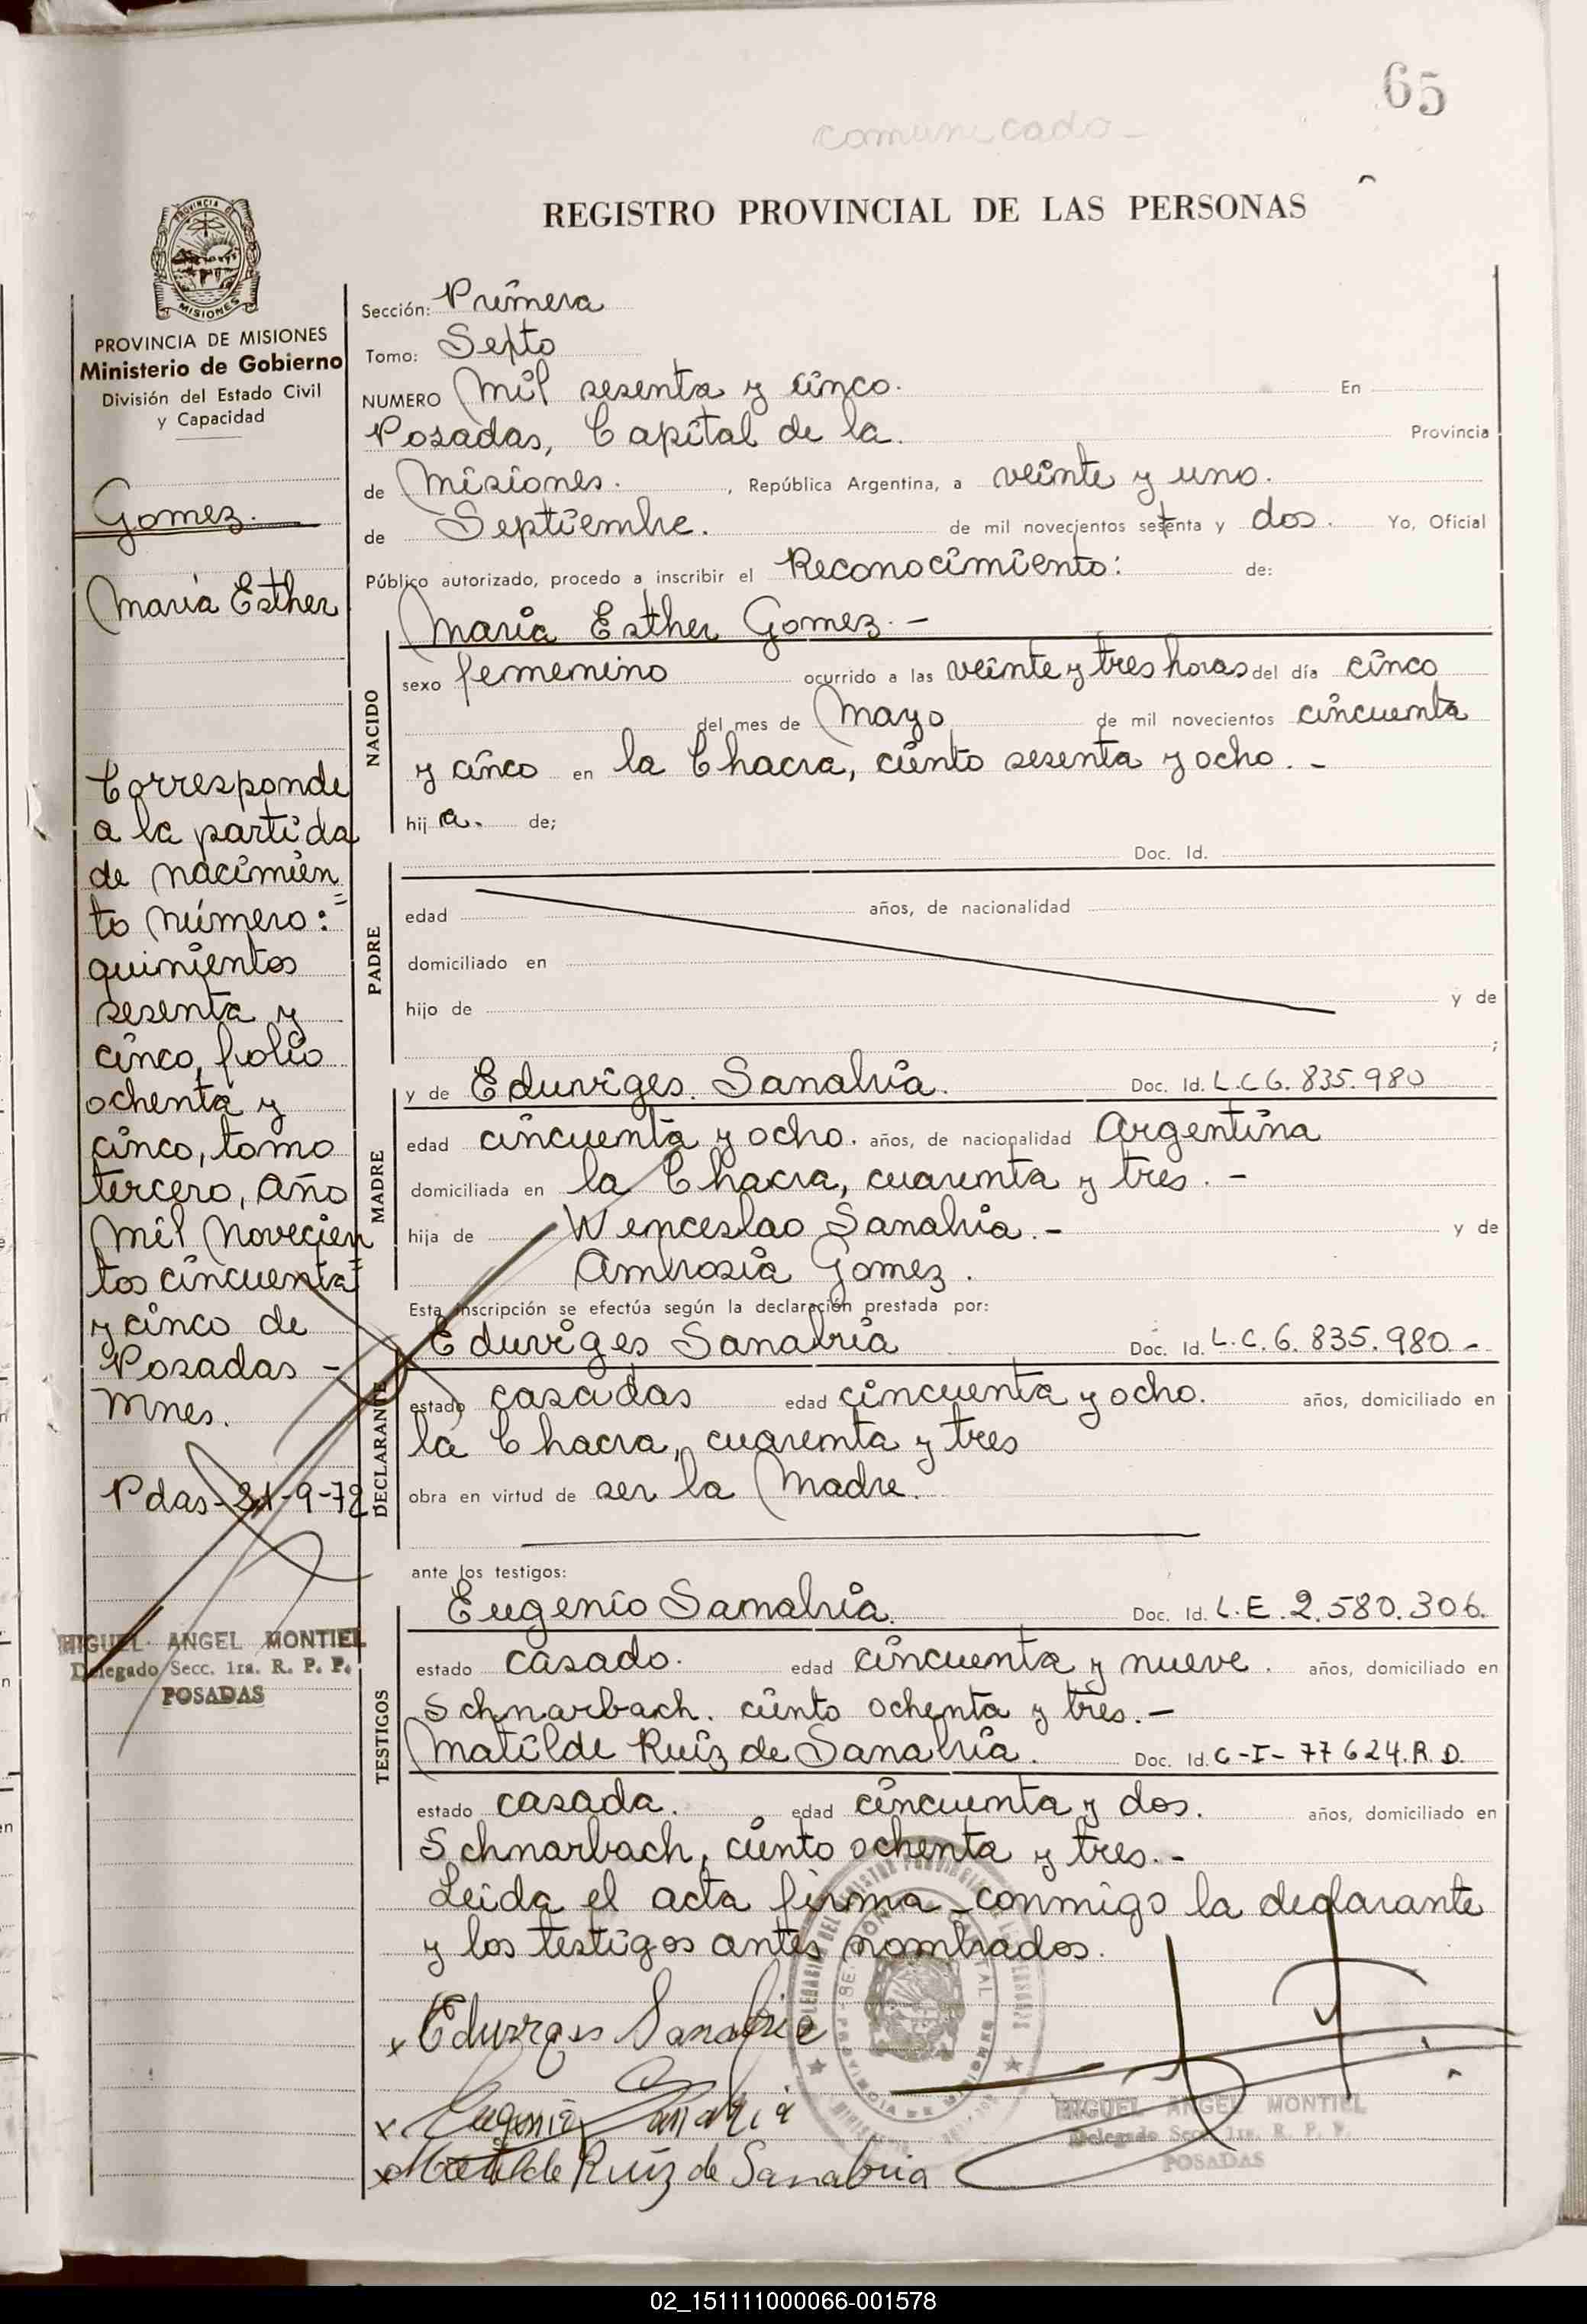 65
comunicado -
REGISTRO PROVINCIAL DE LAS PERSONAS
PROVINCIA DE
MISIONES
PROVINCIA DE MISIONES
Ministerio de Gobierno
División del Estado Civil
y Capacidad
Gomez.
María Esther
Corresponde
a la partida
de nacimien
to número:=
quinientos
sesenta y
cinco, folio
ochenta y
cinco, tomo
tercero, Año
mil novecien
tos cincuenta=
y cinco de
Posadas -
Mnes.
Pdas-21-9-72
MIGUEL ANGEL MONTIEL
Delegado Secc. 1ra. R. P. P.
POSADAS
Sección: Primera
Tomo: Septo
NUMERO Mil sesenta y cinco. En
Posadas, Capital de la. Provincia
de Misiones. , República Argentina, a veinte y uno.
de Septiembre. de mil novecientos setenta y dos. Yo, Oficial
Público autorizado, procedo a inscribir el Reconocimiento: de:
María Esther Gomez. -
NACIDO
sexo femenino ocurrido a las veinte y tres horas del día cinco
del mes de Mayo de mil novecientos cincuenta
y cinco en la Chacra, ciento sesenta y ocho. -
hij a. de;
Doc. Id.
PADRE
edad años, de nacionalidad
domiciliado en
hijo de y de
;
MADRE
y de Eduviges. Sanabria. Doc. Id. L.C 6. 835. 980
edad cincuenta y ocho. años, de nacionalidad Argentina
domiciliada en la Chacra, cuarenta y tres. -
hija de Wenceslao Sanabria. - y de
Ambrosia Gomez.
Esta inscripción se efectúa según la declaración prestada por:
DECLARANTE
Eduviges Sanabria Doc. Id. L.C. 6. 835. 980 -
estado casadas edad cincuenta y ocho. años, domiciliado en
la Chacra, cuarenta y tres
obra en virtud de ser la Madre.
ante los testigos:
TESTIGOS
Eugenio Sanabria. Doc. Id. L.E. 2.580.306.
estado casado. edad cincuenta y nueve. años, domiciliado en
Schnarbach. ciento ochenta y tres. -
Matilde Ruíz de Sanabria. Doc. Id. C-I- 77624.R.D.
estado casada. edad cincuenta y dos. años, domiciliado en
Schnarbach, ciento ochenta y tres. -
Leida el acta firma conmigo la declarante
y los testigos antes nombrados.
x Eduvges Sanabria
x Eugenio Sanabria
x Matilde Ruiz de Sanabria
MIGUEL ANGEL MONTIEL
Delegado Secc. 1ra. R. P. P.
POSADAS
02_151111000066-001578